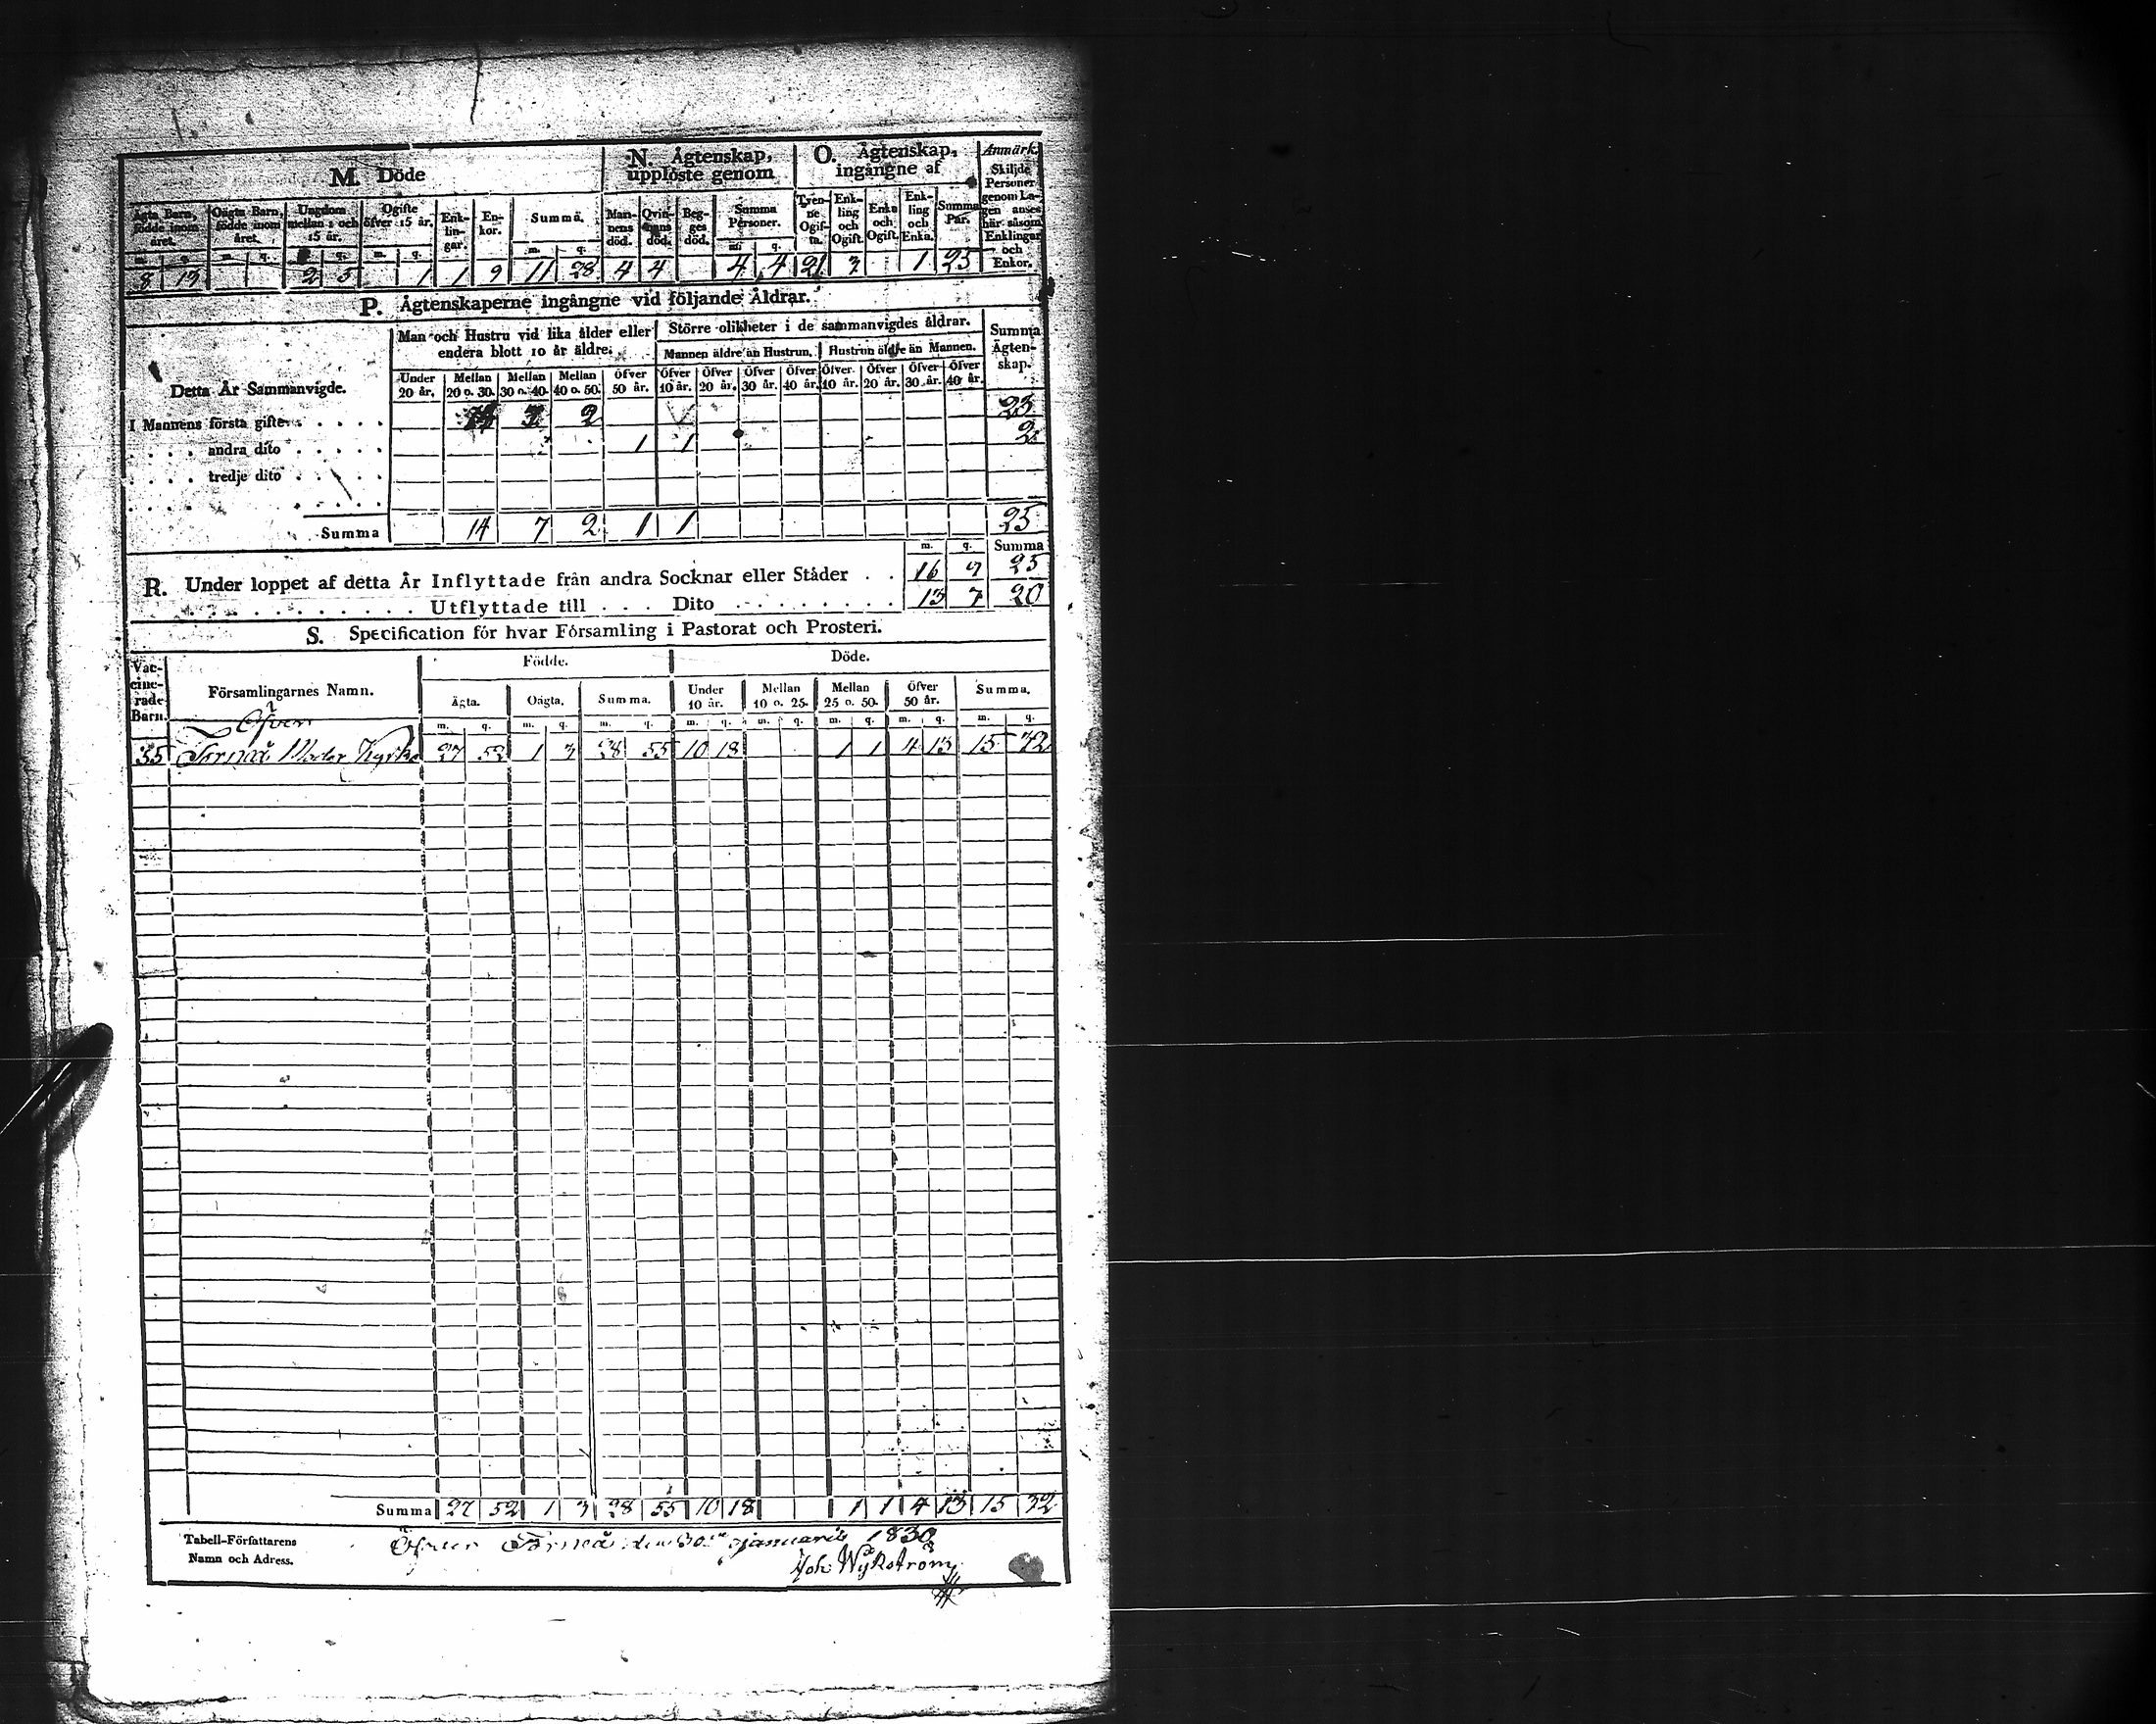 M. Döde
N. Ägtenskap, upplöste genom
O. Ägtenskap, ingångne af
Anmärk. Skiljde Personer genom Lagen anses här såsom Enklingar och Enkor.
Ägta Barn, födde inom året.
Oägta Barn, födde inom året.
Ungdom mellan 1 och 15 år.
Ogifte öfver 15 år.
Enklingar.
Enkor.
Summa.
Mannens död.
Qvinnans död.
Begges död.
Summa Personer.
Tvenne Ogifta.
Enkling och Ogift.
Enka och Ogift.
Enkling och Enka.
Summa Par.
m. q. m. q. q. m. q. m. q. m. q.
8 13 2 5 1 1 9 11 28 4 4 4 4 21 3 1 25
P. Ägtenskaperne ingångne vid följande Åldrar.
Detta År Sammanvigde.
Man och Hustru vid lika ålder eller endera blott 10 år äldre.
Större olikheter i de sammanvigdes åldrar.
Summa Ägtenskap.
Mannen äldre än Hustrun. Hustrun äldre än Mannen.
Under 20 år. Mellan 20 o. 30. Mellan 30 o. 40. Mellan 40 o. 50. Öfver 50 år. Öfver 10 år. Öfver 20 år. Öfver 30 år. Öfver 40 år. Öfver 10 år. Öfver 20 år. Öfver 30 år. Öfver 40 år.
I Mannens första gifte . . . . . 14 7 2 23
. . . . andra dito . . . . . 1 1 2
. . . . tredje dito . . . . .
Summa 14 7 2 1 1 25
m. q. Summa
R. Under loppet af detta År Inflyttade från andra Socknar eller Städer . . 16 9 25
Utflyttade till . . . Dito . . . . . . . . 13 7 20
S. Specification för hvar Församling i Pastorat och Prosteri.
Vaccinerade Barn.
Församlingarnes Namn.
Födde. Döde.
Ägta. Oägta. Summa. Under 10 år. Mellan 10 o. 25. Mellan 25 o. 50. Öfver 50 år. Summa.
m. q. m. q. m. q. m. q. m. q. m. q. m. q. m. q.
Öfver
35 Torneå Moder Kyrka 27 52 1 3 28 55 10 18 1 1 4 13 15 32
Summa 27 52 1 3 28 55 10 18 1 1 4 13 15 32
Tabell-Författarens Namn och Adress.
Öfver Torneå den 30 januarii 1830
Joh: Wykström